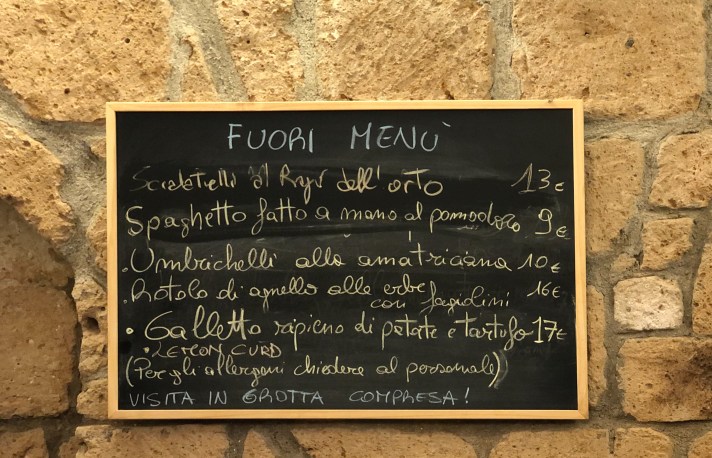 FUORI MENÙ
Scialatielli al Ragù dell'orto 13€
Spaghetto fatto a mano al pomodoro 9€
.Umbrichelli alla amatriciana 10€
.Rotolo di agnello alle erbe 16€
con fagiolini
• Galletto ripieno di patate e tartufo 17€
• LEMON CURD
(Per gli allergeni chiedere al personale)
VISITA IN GROTTA COMPRESA!